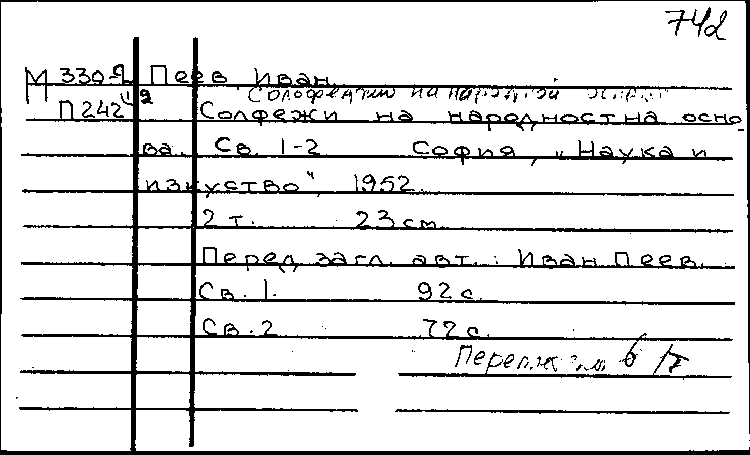 742
М 330-2 Пеев, Иван.
на народной
П242 Солфежи на народностна осно-
ва. Св. 1-2 София, "Наука и
изкуство", 1952.
2 т. 23 см.
Перед загл. авт.: Иван Пеев.
Св. 1. 92 с.
Св. 2 72 с.